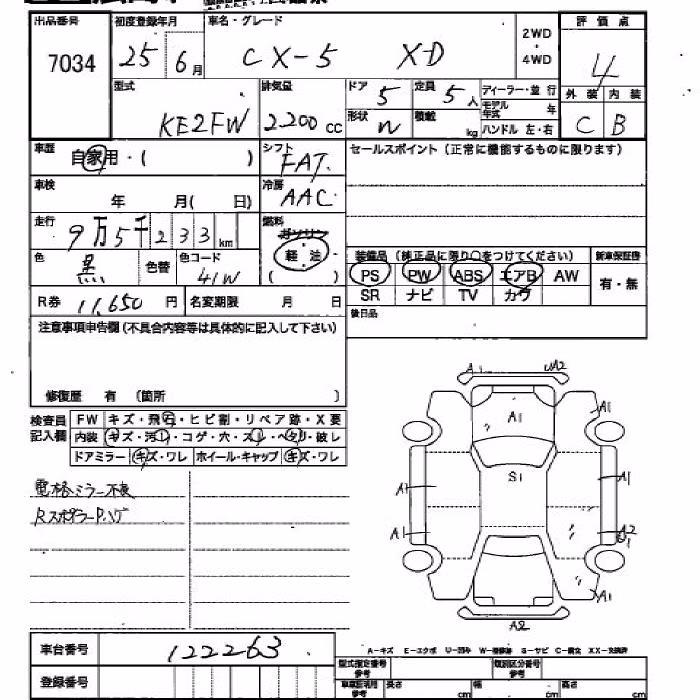 出品番号 初度登録年月 車名・グレード 2WD・4WD 評価点
7034 25年6月 CX-5 XD 4
型式 排気量 ドア 5 定員 5人 ディーラー・並行 外装 内装
KE2FW 2200cc 形状 W 積載 kg モデル年式 年 C B
ハンドル 左・右
車歴 自家用・( ) シフト FAT セールスポイント(正常に機能するものに限ります)
車検 年 月( 日) 冷房 AAC
走行 9万5千233km 燃料 ガソリン
軽・油
( )
色 黒 色替 色コード 41W
装備品(純正品に限り○をつけてください) 新車保証書
PS PW ABS エアB AW 有・無
SR ナビ TV カワ
R券 11,650円 名変期限 月 日
後日品
注意事項申告欄(不具合内容等は具体的に記入して下さい)
修復歴 有 (箇所 )
検査員記入欄 FW キズ・飛石・ヒビ割・リペア跡・X要
内装 キズ・汚レ・コゲ・穴・スレ・ヘタリ・破レ
ドアミラー キズ・ワレ ホイール・キャップ キズ・ワレ
電格ミラー不良
Rスポイラー P.ハゲ
A1
A1
A1
S1
A1
A1
A1
A2
A1
A2
A-キズ E-エクボ U-凹み W-補修跡 S-サビ C-腐食 XX-交換済
車台番号 122263
登録番号
型式指定番号 参考 類別区分番号 参考
参考 長さ cm 幅 cm 高さ cm